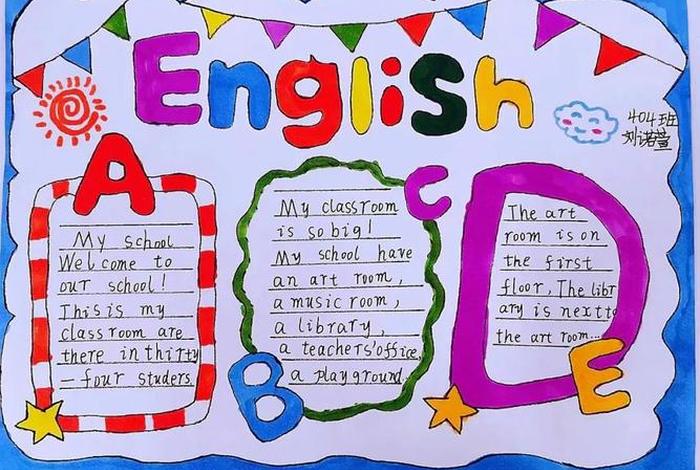 English
404班
刘诺萱
A
My school
Welcome to
our school!
This is my
classroom are
there in thirty
-four studers.
B
C
My classroom
is so big!
My school have
an art room,
a music room,
a library,
a teachers'office,
a playground.
D
The art
room is on
the first
floor, The libr
ary is nextto
the art room...
E